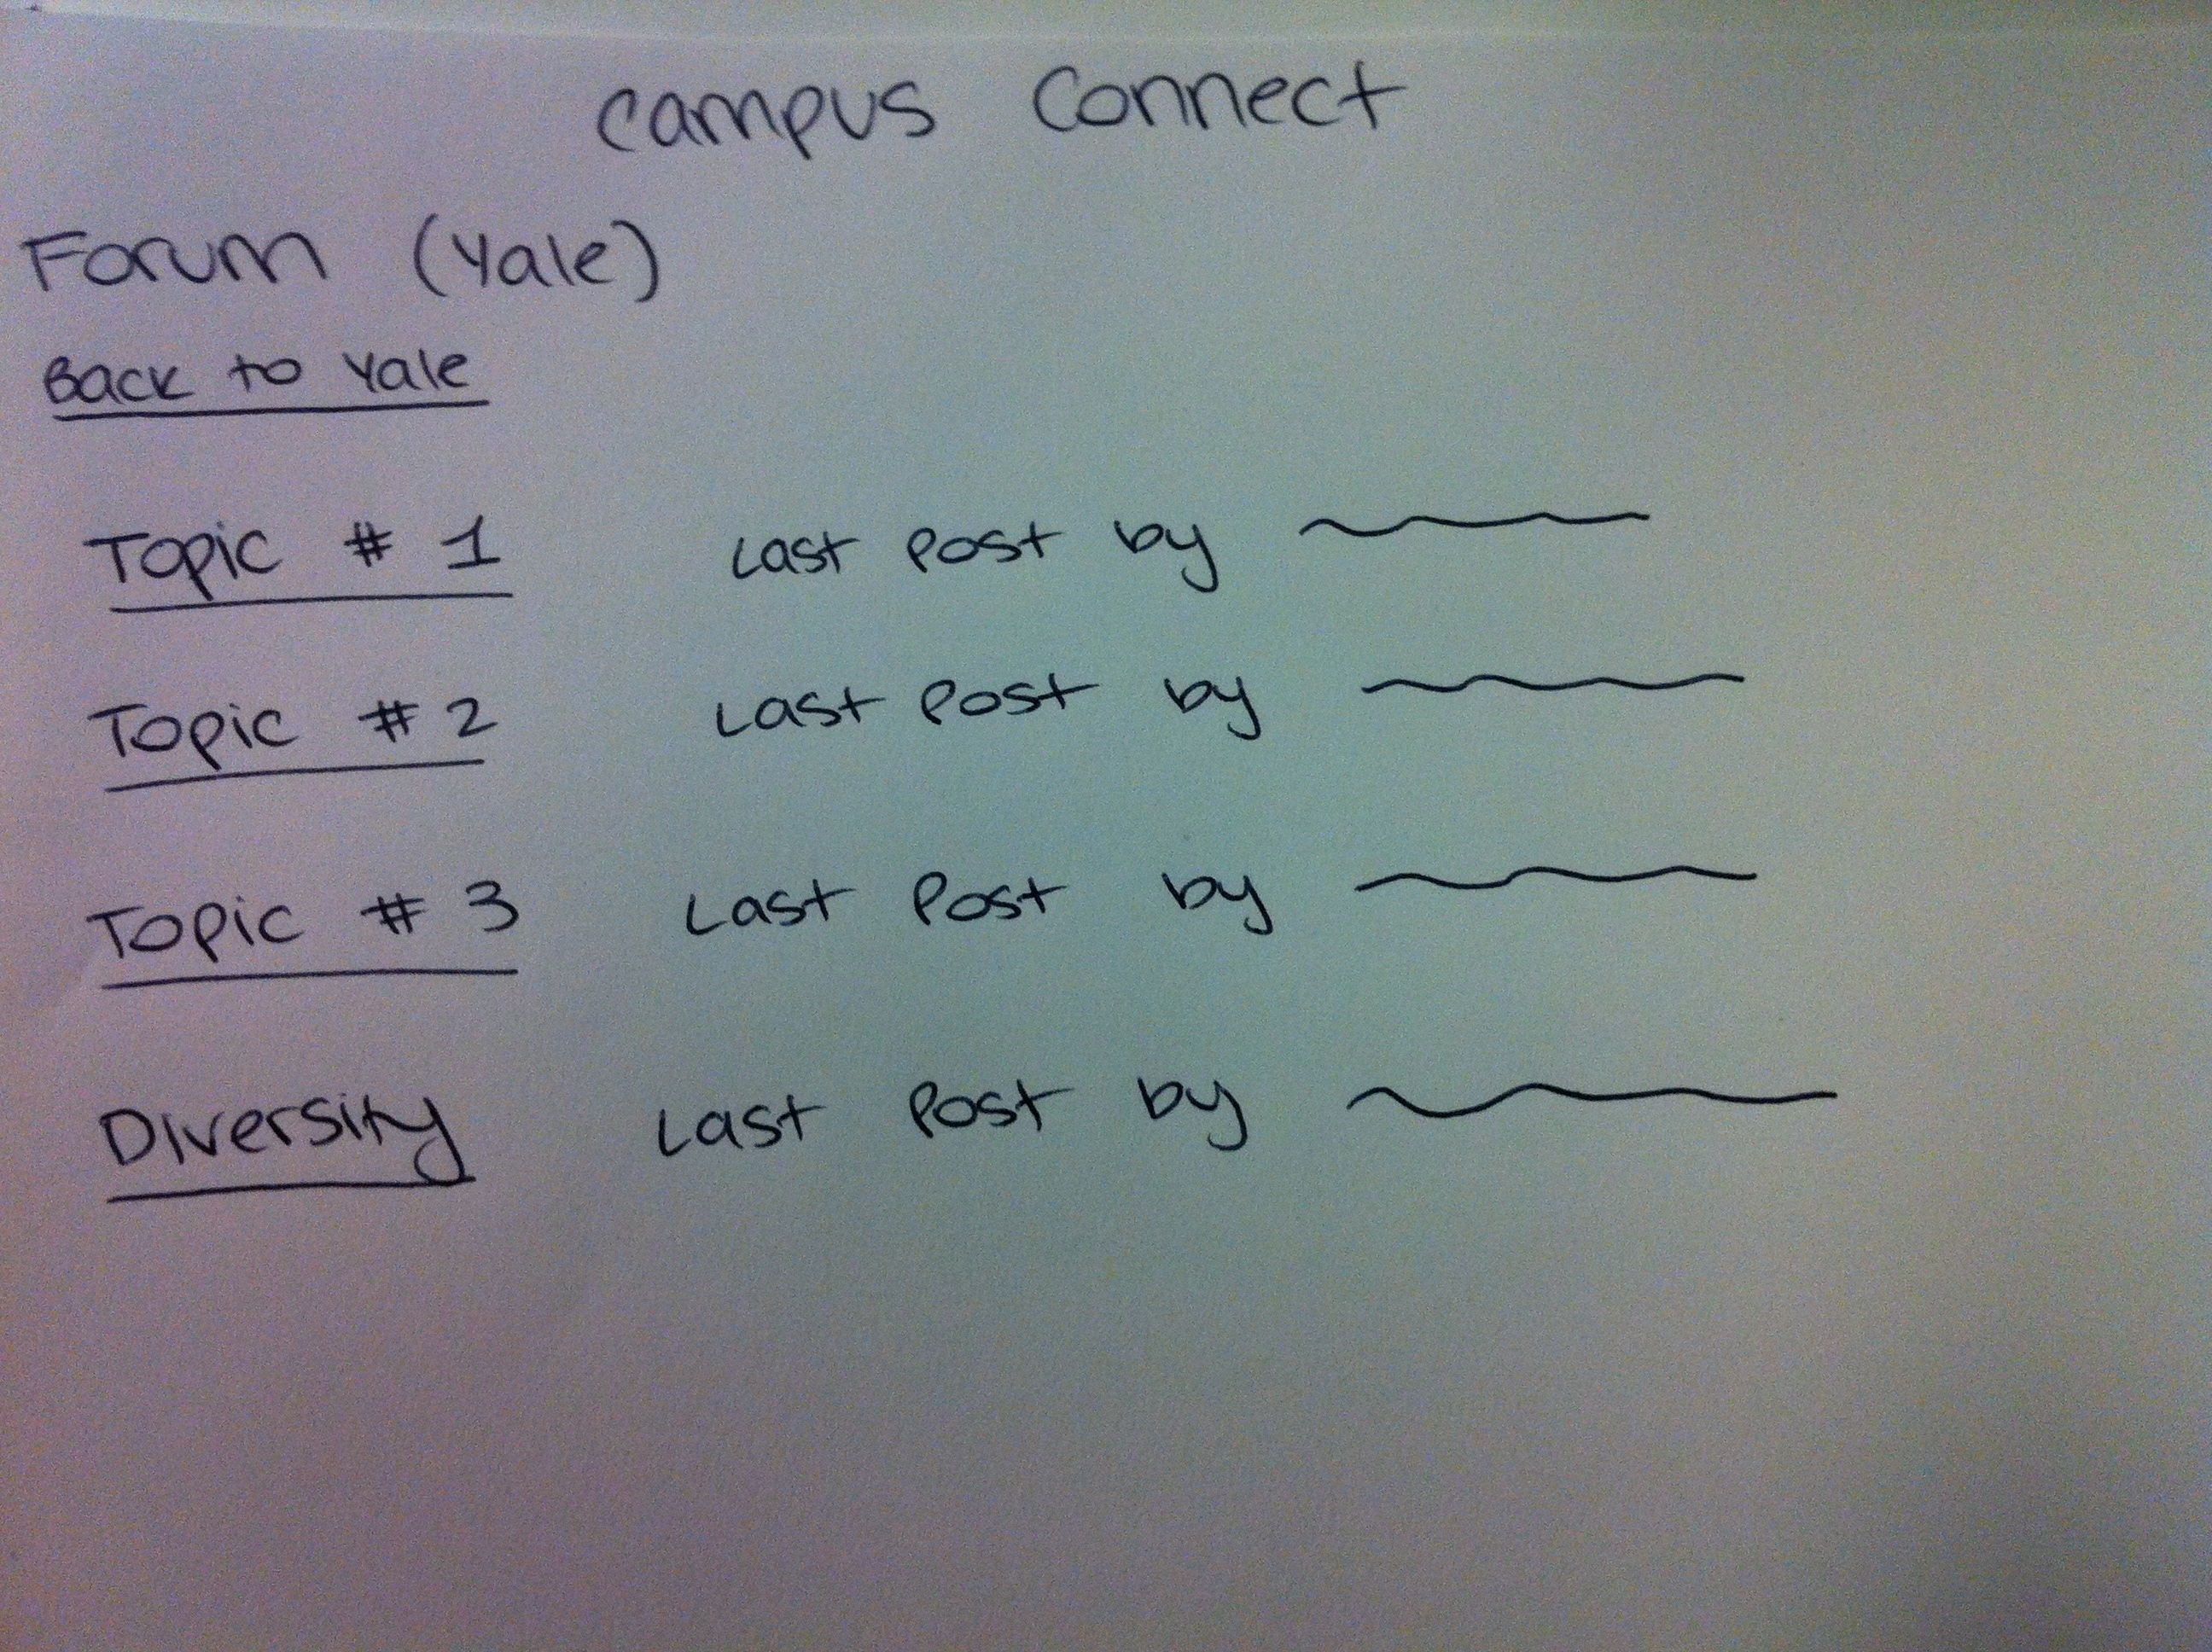 Campus Connect
Forum (Yale)
Back to Yale
Topic # 1 Last Post by
Topic # 2 Last Post by
Topic # 3 Last Post by
Diversity Last Post by